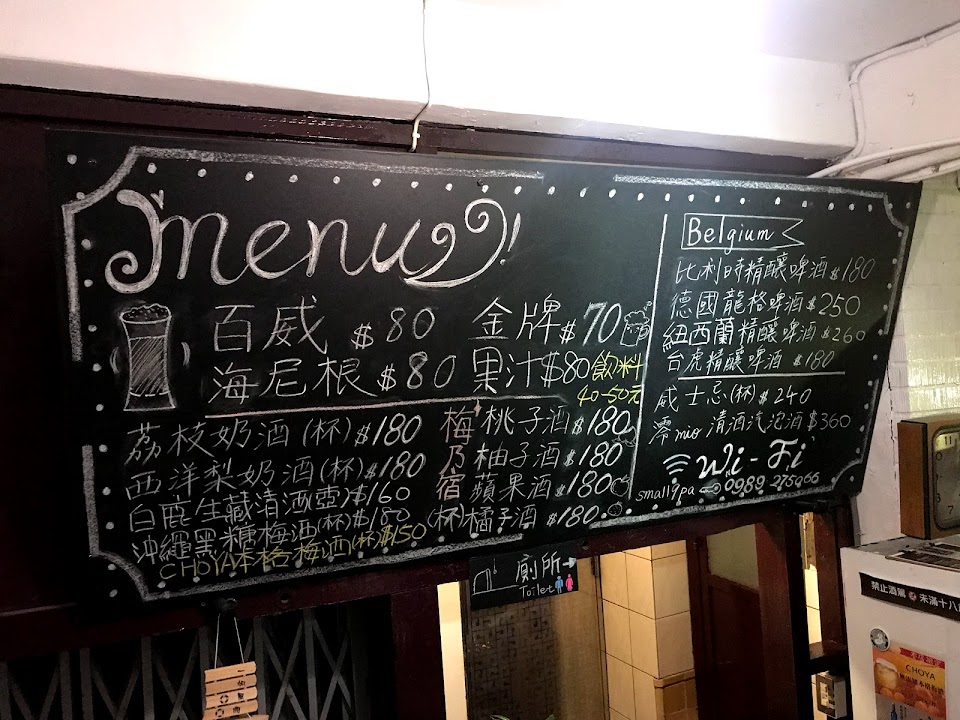 menu!
百威 $80
金牌 $70
海尼根 $80
果汁 $80 飲料
40-50元
荔枝奶酒(杯)$180
西洋梨奶酒(杯)$180
白鹿生藏清酒(壺)$160
沖繩黑糖梅酒(杯)$180
CHOYA本格梅酒(杯)$150
梅乃宿(杯)
桃子酒 $180
柚子酒 $180
蘋果酒 $180
橘子酒 $180
Belgium
比利時精釀啤酒 $180
德國龍格啤酒 $250
紐西蘭精釀啤酒 $260
台虎精釀啤酒 $180
威士忌(杯) $240
澪mio清酒汽泡酒 $360
Wi-Fi
0989 275066
廁所→
Toilet
禁止酒駕
未滿十八
CHOYA